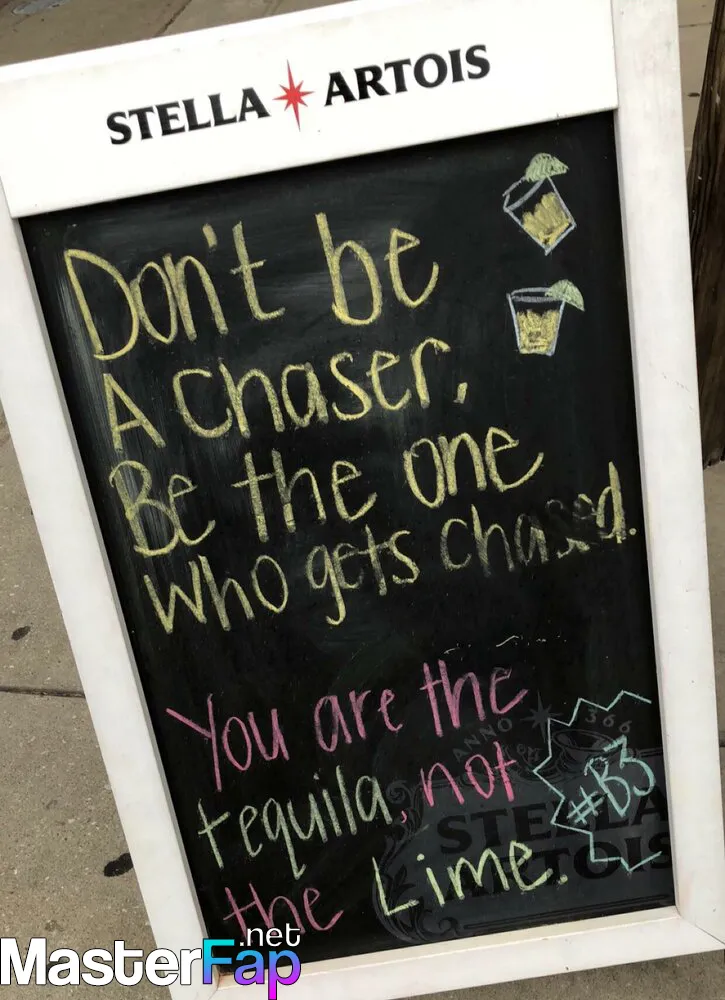 STELLA ARTOIS
Don't be
A chaser,
Be the one
who gets chased.
You are the
tequila, not
the Lime.
#B3
ANNO 1366
STELLA
ARTOIS
MasterFap.net